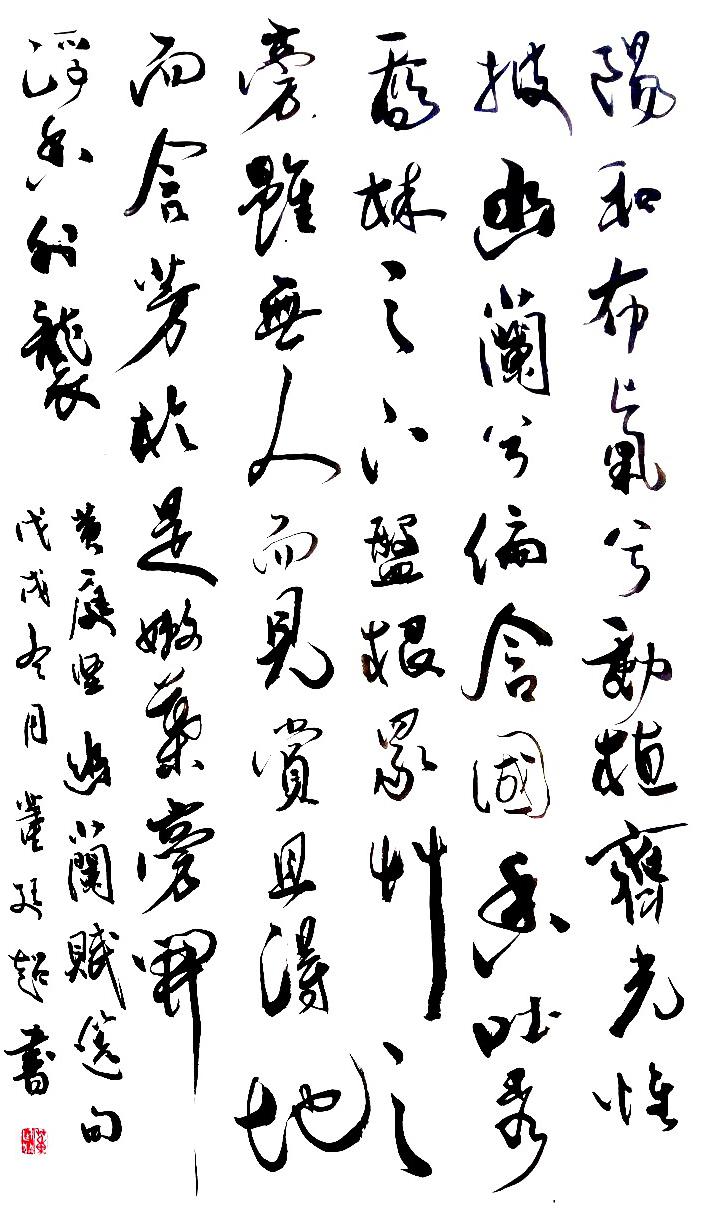 陽和布氣兮動植齊光惟
披幽蘭兮偏含國香吐秀
喬林之下盤根眾艸之
旁雖無人而見賞且得地
而含芳於是嫩葉旁開
浮香外襲
黄庭坚幽蘭賦選句
戊戌冬月董延超書